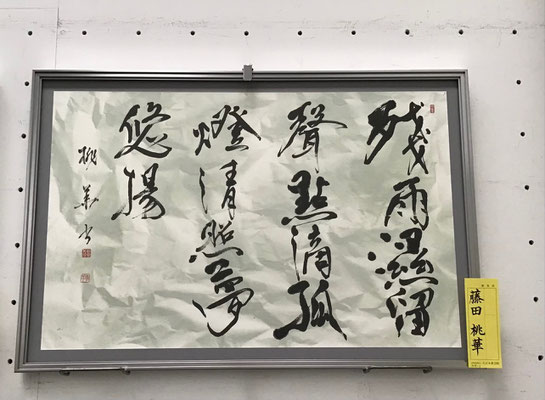 殘雨濕留
聲點滴孤
燈清照夢
悠揚
桃華書
藤田 桃華